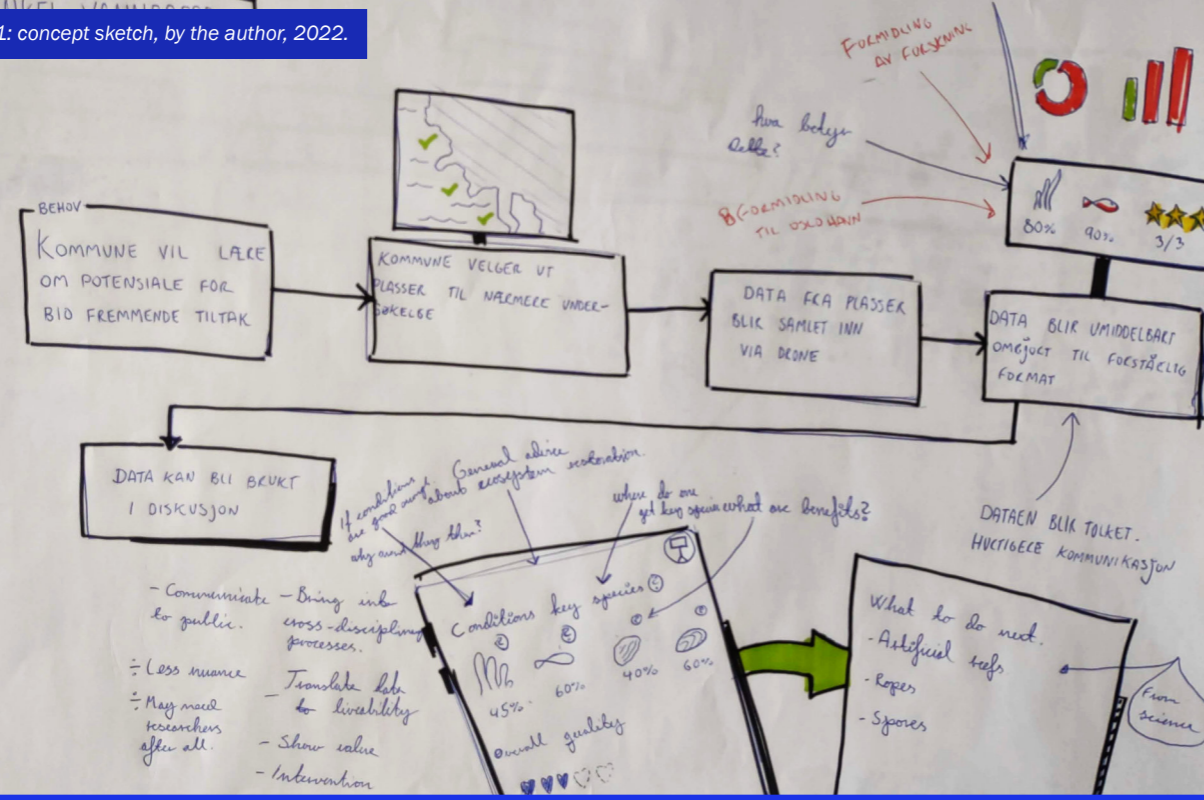 1: concept sketch, by the author, 2022.
FORMIDLING
AV FORSKNING
hva betyr
dette?
FORMIDLING
TIL OSLO HAVN
80%
90%
3/3
BEHOV
KOMMUNE VIL LÆRE
OM POTENSIALE FOR
BIO FREMMENDE TILTAK
KOMMUNE VELGER UT
PLASSER TIL NÆRMERE UNDER-
SØKELSE
DATA FRA PLASSER
BLIR SAMLET INN
VIA DRONE
DATA BLIR UMIDDELBART
OMGJORT TIL FORSTÅELIG
FORMAT
DATA KAN BLI BRUKT
I DISKUSJON
If conditions
are good
why aren't they there?
General advice
about ecosystem restoration.
where do one
get key species
what are benefits?
DATAEN BLIR TOLKET.
HURTIGERE KOMMUNIKASJON
- Communicate
to public.
÷ Less nuance
÷ May need
researchers
after all.
- Bring into
cross-disciplinary
processes.
- Translate data
to liveability
- Show value
- Intervention
Conditions key species
45%
60%
40%
60%
Overall quality
What to do next.
- Artificial reefs
- Ropes
- Spores
From
science